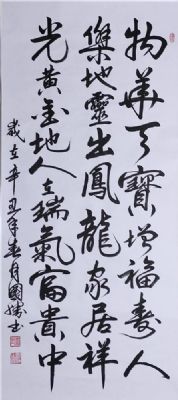 物華天寶增福壽人
傑地靈出鳳龍家居祥
光黃金地人立瑞氣富貴中
歲在辛丑年春月國勝书